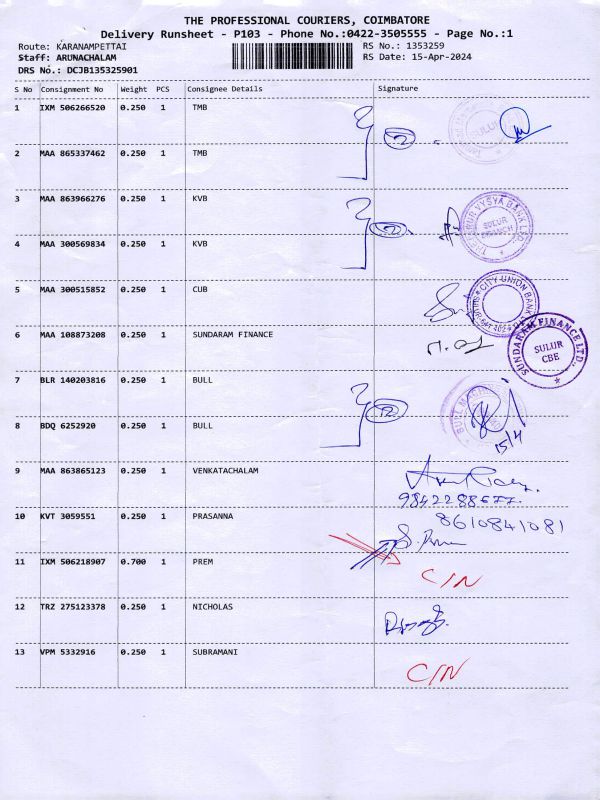 THE PROFESSIONAL COURIERS, COIMBATORE
Delivery Runsheet - P103 - Phone No.:0422-3505555 - Page No.:1
Route: KARANAMPETTAI RS No.: 1353259
Staff: ARUNACHALAM RS Date: 15-Apr-2024
DRS No.: DCJB135325901
S No Consignment No Weight PCS Consignee Details Signature
1 IXM 506266520 0.250 1 TMB 2 SULUR
2 MAA 865337462 0.250 1 TMB
3 MAA 863966276 0.250 1 KVB 2 VYSYA BANK LTD. SULUR BRANCH
4 MAA 300569834 0.250 1 KVB
5 MAA 300515852 0.250 1 CUB CITY UNION BANK
6 MAA 108873208 0.250 1 SUNDARAM FINANCE SUNDARAM FINANCE LTD. SULUR CBE
7 BLR 140203816 0.250 1 BULL 2
8 BDQ 6252920 0.250 1 BULL 15/4
9 MAA 863865123 0.250 1 VENKATACHALAM
9842288677.
10 KVT 3059551 0.250 1 PRASANNA 8610841081
11 IXM 506218907 0.700 1 PREM C/N
12 TRZ 275123378 0.250 1 NICHOLAS
13 VPM 5332916 0.250 1 SUBRAMANI C/N